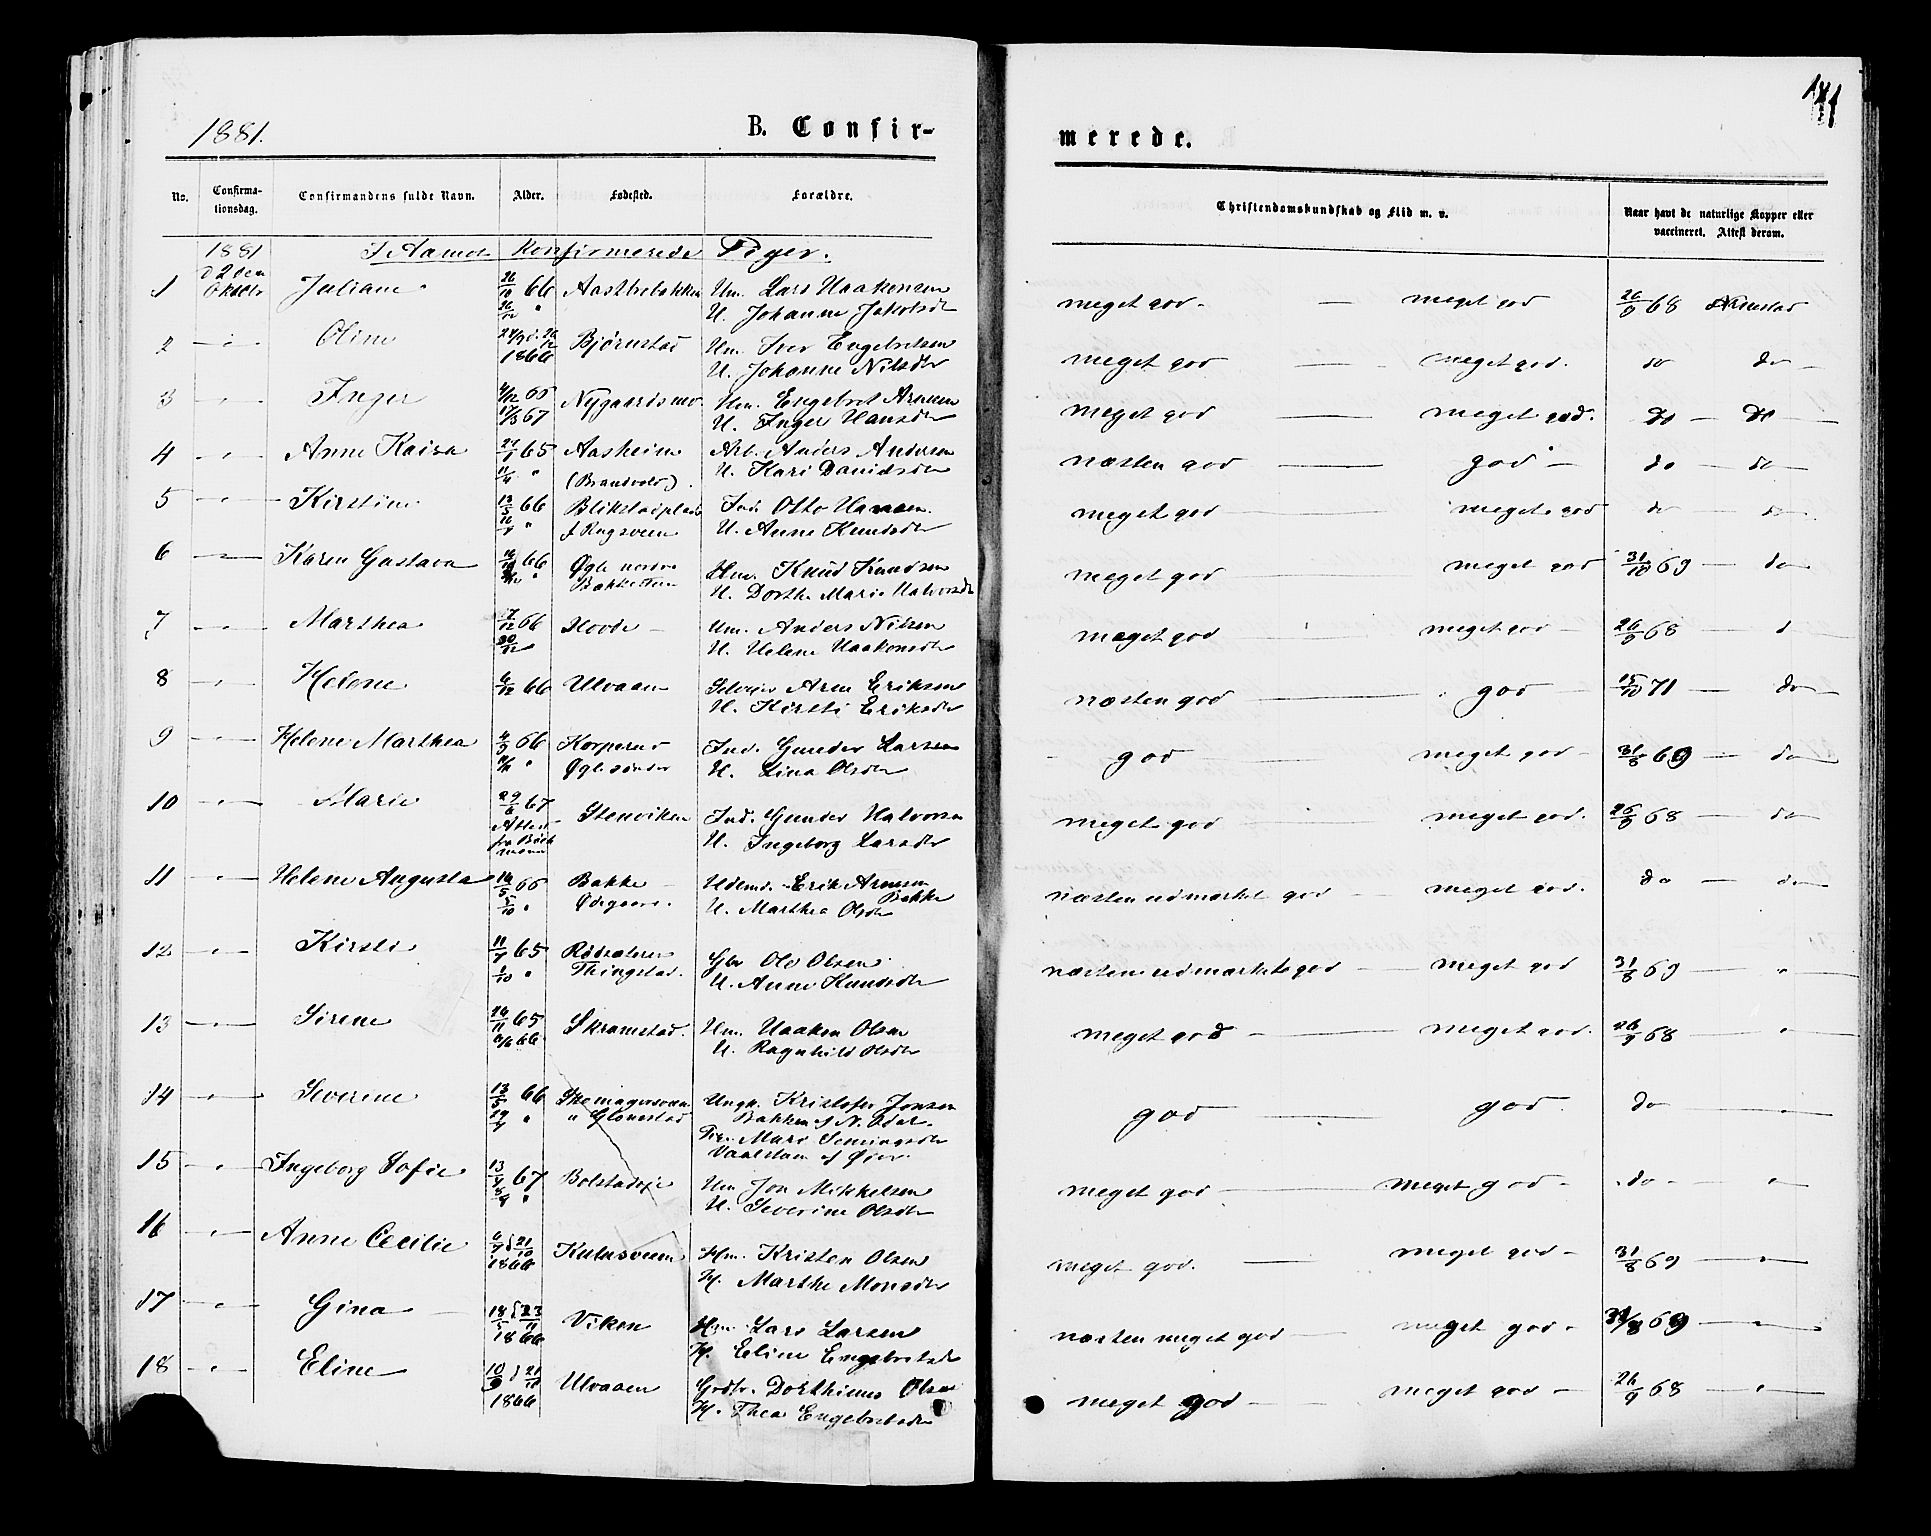 1881.
B. Confir-
merede.
141
No.
Confirma-
tionsdag.
Confirmandens fulde Navn.
Alder.
Fødested.
Forældre.
Christendomskundskab og Flid m. v.
Naar havt de naturlige Kopper eller
vaccineret. Attest derom.
1881 I Aamot Konfirmerede Piger.
d 2den
Oktobr
1 Juliane 26/10 66 Hm. Lars Haakonsen meget god meget god 26/9 68
U. Johanne Jakobsdtr
2 Oline 1866 Bjørnstad Hm. Iver Engebretsen meget god meget god. do do
U. Johanne Nilsdtr
3 Inger 67 Nygaardsmo Hm. Engebret Arnesen meget god meget god. do do
U. Inger Hansdtr
4 Anne Kaisa 65 Aasheim Arb. Anders Andersen næsten god god do do
(Brandvold). U. Kari Danielsdtr
5 Kirstine 13/5 66 Blikstadplads Ind. Otto Hansen. meget god meget god do do
f Rugsveen U. Anne Knudsdtr
6 Karen Gustava 66 Øgle nordre Hm. Knud Knudsen meget god meget god 31/10 69 do
Bakketun U. Dorthe Marie Halvorsdtr
7 Marthea 17/12 66 Hovde Hm. Anders Nilsen meget god meget god 26/9 68 d
30/12 U. Helene Haakonsdtr
8 Helene 6/12 66 Ulvaaen Selveier Arne Eriksen næsten god god 15/10 71 do
U. Kirsti Eriksdtr
9 Helene Marthea 4/9 66 Korperud Ind. Gunder Larsen god meget god 31/8 69 do
Øgle søndre U. Lina Olsdtr
10 Marie 29/6 67 Stenviken Ind. Gunder Halvorsen meget god meget god. 26/9 68 do
Attest U. Ingeborg Larsdtr
11 Helene Augusta 14/5 66 Bakke Erik Arnesen næsten udmærket god meget god. do do
5/10 Ødegaard. Bakke
U. Marthea Olsdtr
12 Kirsti 11/7 65 Rødsæteren Gbr Ole Olsen næsten udmærket god meget god 31/8 69
1/10 Thingstad. U. Anne Knudsdtr
13 Sirene 65 Skramstad. Hm. Haaken Olsen meget god meget god. 26/9 68
66 U. Ragnhild Olsdtr
14 Severine 13/5 66 Skomagersveen Ungk. Kristofer Jonsen god god. do
Glomstad Bakken af N. Odal.
Pige Mari
af Øier
15 Ingeborg Sofie 13/4 67 Bolstadeje Hm Jon Mikkelsen meget god meget god do
U. Severine Olsdtr
16 Anne Cecilie 1866 Hm. Kristen Olsen meget god. meget god 31/8 69
H. Marthe Monsdtr
17 Gina 1866 Viken Hm. Lars Larsen næsten meget god meget god. 31/8 69
H. Eline Engebretsdtr
18 Eline 1866 Ulvaaen Dorthinus Olsen meget god meget god 26/9 68
H. Thea Engebretsdtr